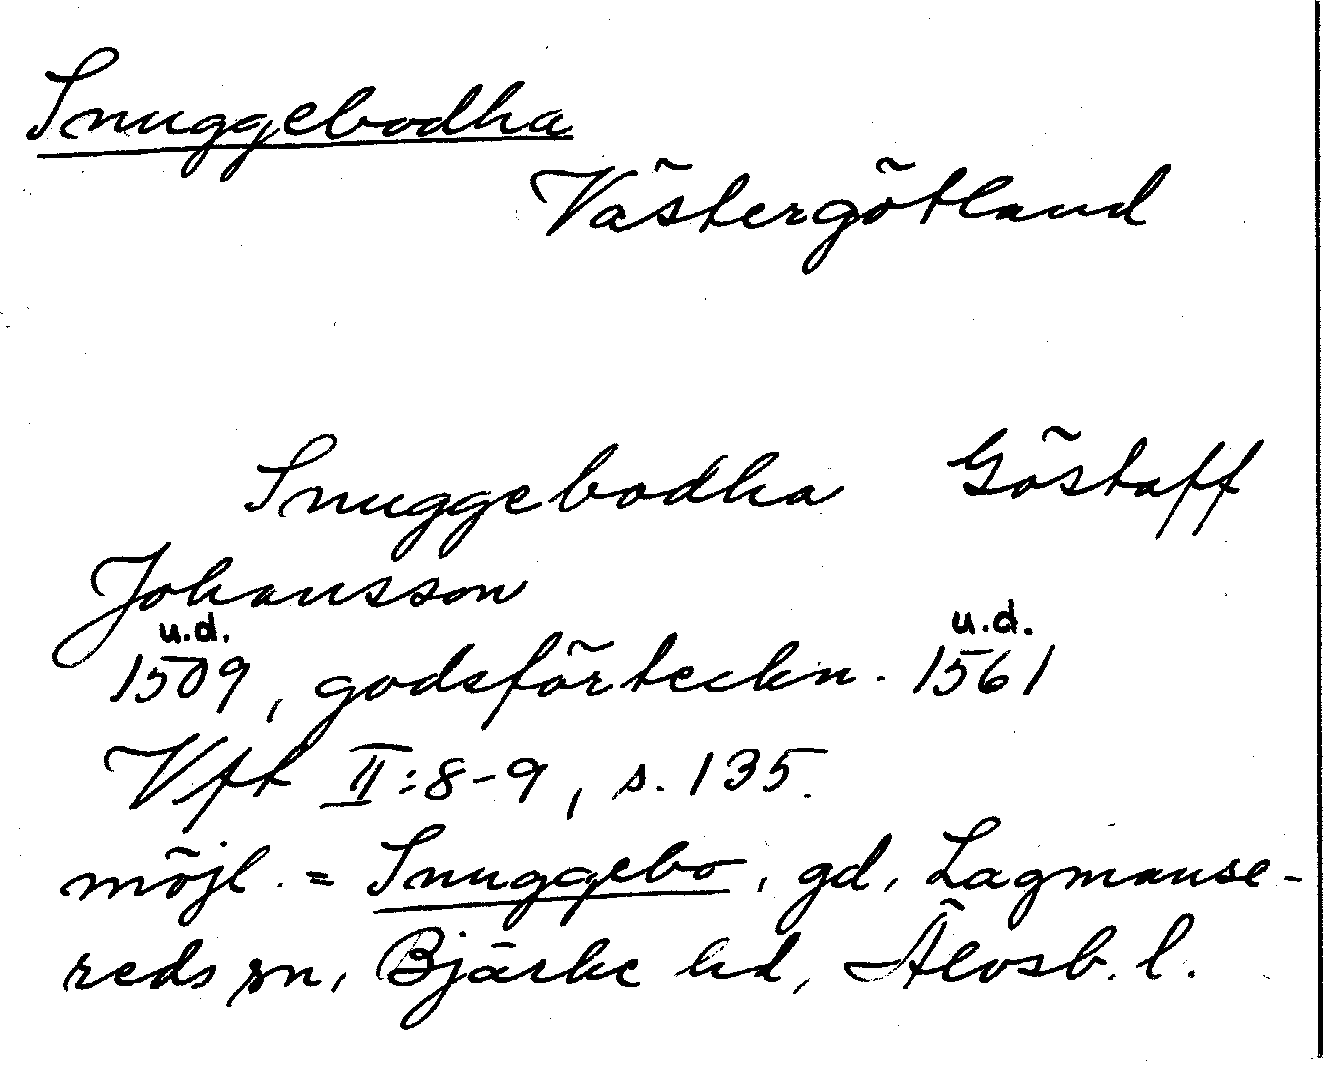 Snuggebodha
Västergötland
Snuggebodha Göstaff
Johansson
u.d. u.d.
1509, godsförteckn. 1561
Vft II:8-9, s. 135.
möjl. = Snuggebo, gd, Lagmanse-
reds sn, Bjärke hd, Älvsb. l.